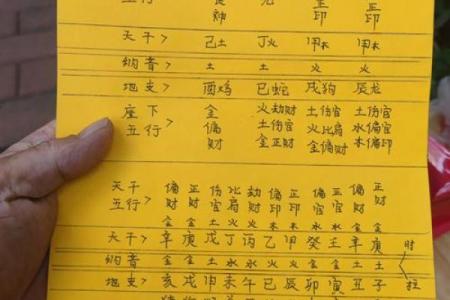 五行> 神 印 印
天干> 己土 丁火 甲木 甲木
纳音> 土 土 火 火
地支> 酉鸡 巳蛇 戌狗 辰龙
座下 金 火劫财 土伤官 土伤官
五行> 偏 土伤官 火比肩 水偏官
财 金正财 金偏财 木偏印
天干 偏 正 伤 比 劫 偏 正 偏 正 偏 正
五行> 财 财 官 肩 财 印 印 官 官 财 财
金 金 土 火 火 木 木 水 水 金 金
天干> 辛 庚 戊 丁 丙 乙 甲 癸 壬 辛 庚 时
纳音> 金 金 土 水 水 火 火 金 金 土 土
地支> 亥 戌 申 未 午 巳 辰 卯 寅 丑 子 柱